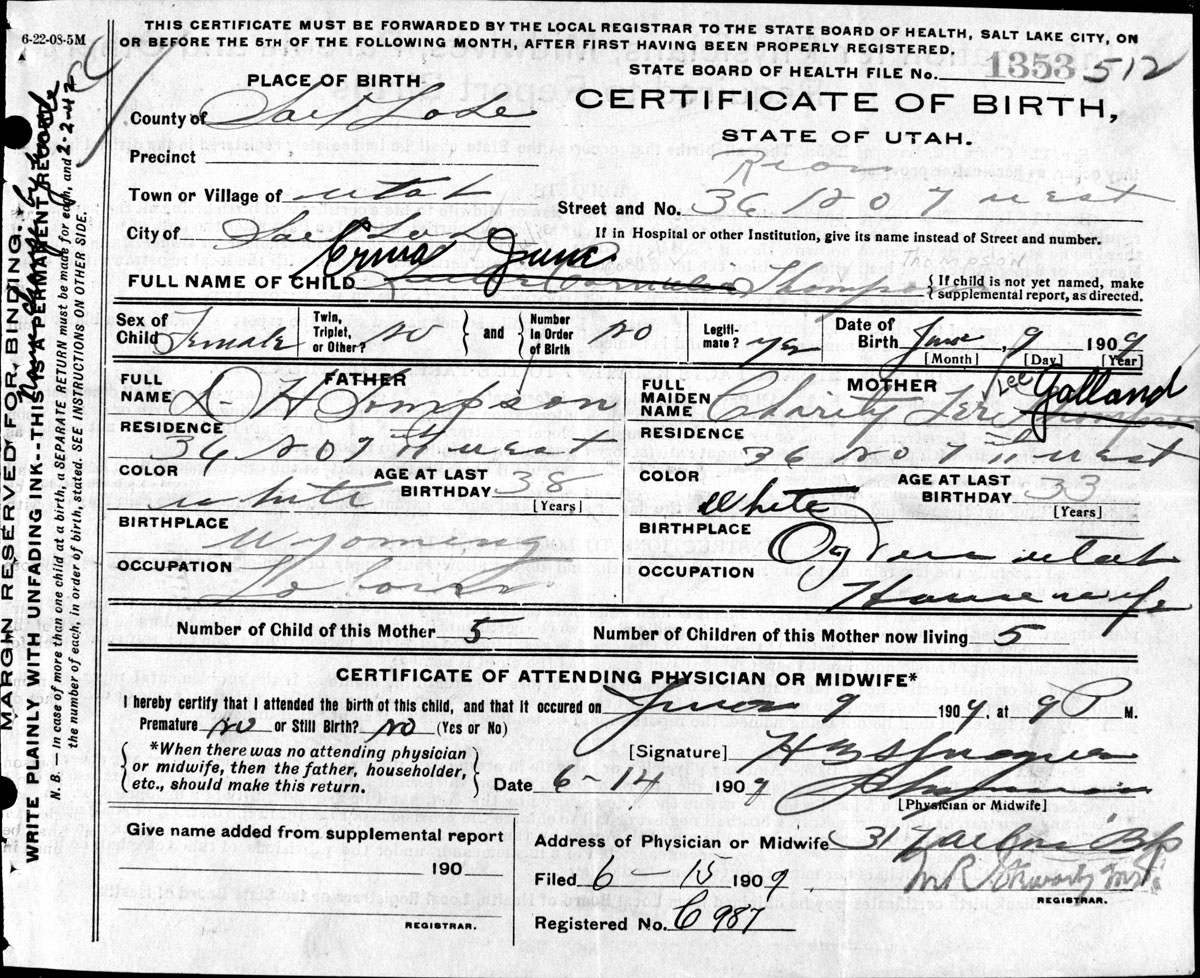 6-22-08-5M
THIS CERTIFICATE MUST BE FORWARDED BY THE LOCAL REGISTRAR TO THE STATE BOARD OF HEALTH, SALT LAKE CITY, ON
OR BEFORE THE 5TH OF THE FOLLOWING MONTH, AFTER FIRST HAVING BEEN PROPERLY REGISTERED,
STATE BOARD OF HEALTH FILE No. 1353 512
CERTIFICATE OF BIRTH,
STATE OF UTAH.
PLACE OF BIRTH
County of Salt Lake
Precinct
Town or Village of Utah
Rear
Street and No. 36 So 7 West
City of Salt Lake
If in Hospital or other Institution, give its name instead of Street and number.
Erma June
Thompson
FULL NAME OF CHILD Cornelia Thompson
{If child is not yet named, make supplemental report, as directed.
Sex of Child Female
Twin, Triplet, or Other? No
and
Number in Order of Birth no
Legitimate? yes
Date of Birth June 9 1909
[Month] [Day] [Year]
FATHER
FULL NAME D H Tompson
RESIDENCE
36 So 7 West
COLOR
white
AGE AT LAST BIRTHDAY 38
[Years]
BIRTHPLACE
Wyoming
OCCUPATION
MOTHER
FULL MAIDEN NAME Charity Lee Galland
RESIDENCE
36 So 7 West
COLOR
White
AGE AT LAST BIRTHDAY 33
[Years]
BIRTHPLACE
Ogden Utah
OCCUPATION
Housewife
Number of Child of this Mother 5
Number of Children of this Mother now living 5
CERTIFICATE OF ATTENDING PHYSICIAN OR MIDWIFE*
I hereby certify that I attended the birth of this child, and that it occured on June 9 1909, at 9 P M.
Premature no or Still Birth? No (Yes or No)
*When there was no attending physician
or midwife, then the father, householder,
etc., should make this return.
[Signature]
Date 6-14 1909
Physician
[Physician or Midwife]
Give name added from supplemental report
190
REGISTRAR.
Address of Physician or Midwife 317
Filed 6-15 1909
REGISTRAR.
Registered No. C 987
MARGIN RESERVED FOR BINDING.
WRITE PLAINLY WITH UNFADING INK--THIS IS A PERMANENT RECORD
N. B. In case of more than one child at a birth, a SEPARATE RETURN must be made for each, and
the number of each, in order of birth, stated. SEE INSTRUCTIONS ON OTHER SIDE.
2-2-42